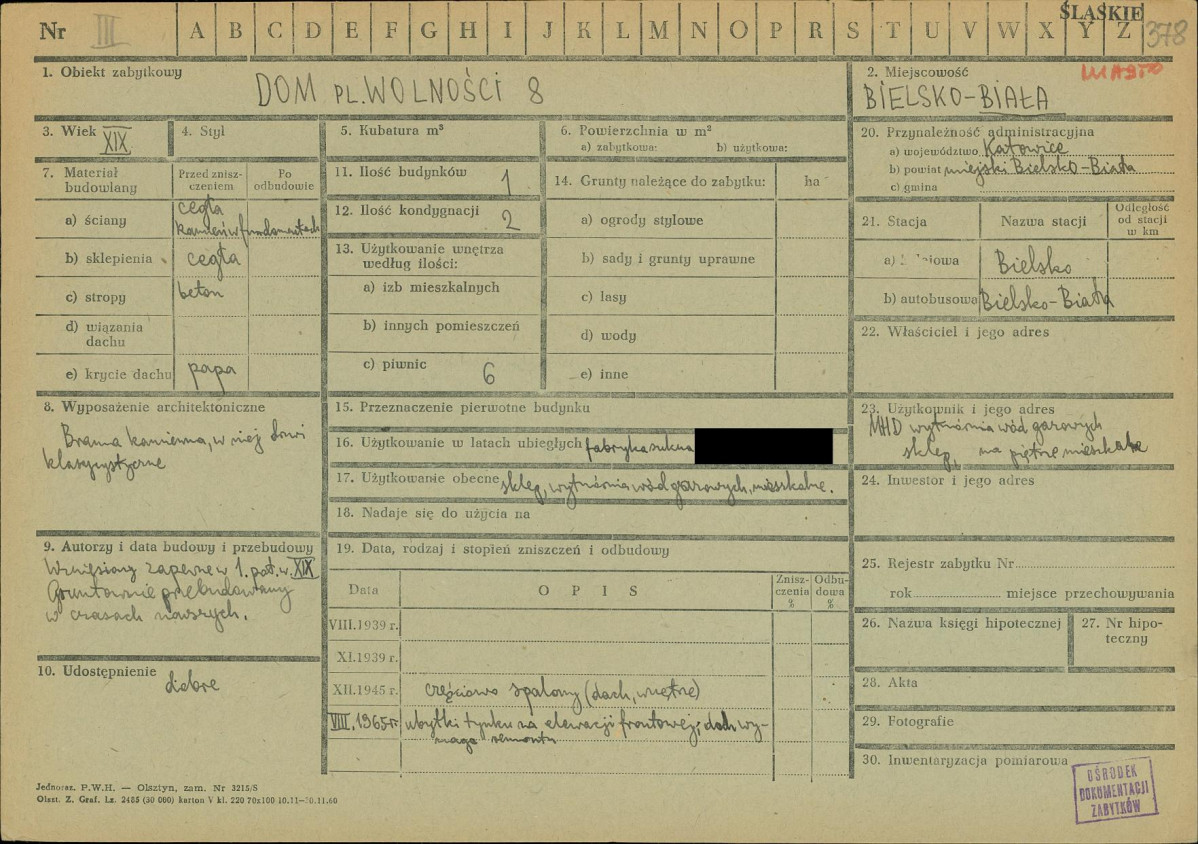 Nr III A B C D E F G H I J K L M N O P R S T U V W X Y Z
ŚLĄSKIE
378
MIASTO
1. Obiekt zabytkowy
DOM PL. WOLNOŚCI 8
2. Miejscowość
BIELSKO-BIAŁA
3. Wiek XIX
4. Styl
5. Kubatura m³
6. Powierzchnia w m²
a) zabytkowa: b) użytkowa:
7. Materiał budowlany
Przed zniszczeniem
Po odbudowie
a) ściany cegła
kamień w fundamentach
b) sklepienia cegła
c) stropy beton
d) wiązania dachu
e) krycie dachu papa
8. Wyposażenie architektoniczne
Brama kamienna, w niej drzwi
klasycystyczne
9. Autorzy i data budowy i przebudowy
Wzniesiony zapewne w 1. poł. w. XIX
Gruntownie przebudowany
w czasach nowszych.
10. Udostępnienie
dobre
11. Ilość budynków 1
12. Ilość kondygnacji 2
13. Użytkowanie wnętrza
według ilości:
a) izb mieszkalnych
b) innych pomieszczeń
c) piwnic 6
14. Grunty należące do zabytku: ha
a) ogrody stylowe
b) sady i grunty uprawne
c) lasy
d) wody
e) inne
15. Przeznaczenie pierwotne budynku
16. Użytkowanie w latach ubiegłych fabryka sukna
17. Użytkowanie obecne sklep, wytwórnia wód gazowych, mieszkalne.
18. Nadaje się do użycia na
19. Data, rodzaj i stopień zniszczeń i odbudowy
Data
O P I S
Zniszczenia %
Odbudowa %
VIII.1939 r.
XI.1939 r.
XII.1945 r. częściowo spalony (dach, wnętrze)
VIII.1965 r. ubytki tynku na elewacji frontowej; dach wy-
maga remontu
20. Przynależność administracyjna
a) województwo Katowice
b) powiat miejski Bielsko-Biała
c) gmina
21. Stacja
Nazwa stacji
Odległość od stacji w km
a) Bielsko
b) autobusowa Bielsko-Biała
22. Właściciel i jego adres
23. Użytkownik i jego adres
MHD wytwórnia wód gazowych
sklep, na piętrze mieszkalne
24. Inwestor i jego adres
25. Rejestr zabytku Nr
rok miejsce przechowywania
26. Nazwa księgi hipotecznej
27. Nr hipoteczny
28. Akta
29. Fotografie
30. Inwentaryzacja pomiarowa
OŚRODEK
DOKUMENTACJI
ZABYTKÓW
Jednoraz. P.W.H. — Olsztyn, zam. Nr 3215/S
Olszt. Z. Graf. Lz. 2485 (30 000) karton V kl. 220 70x100 10.11—10.11.60